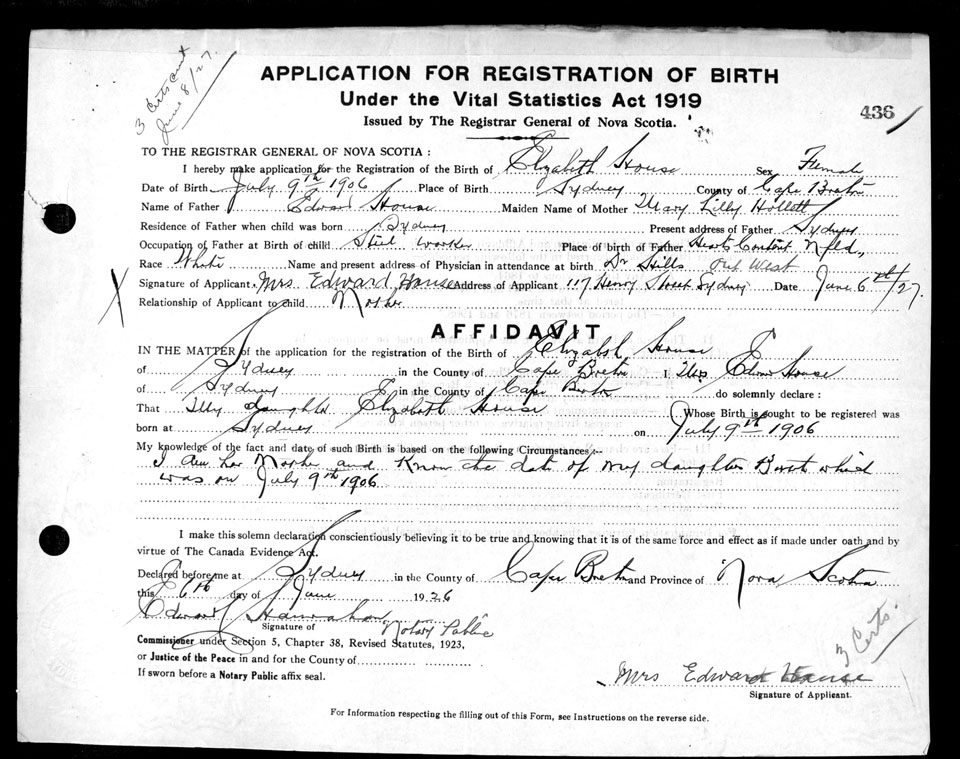 3 Certs sent
June 8/27.
APPLICATION FOR REGISTRATION OF BIRTH
Under the Vital Statistics Act 1919
436
Issued by The Registrar General of Nova Scotia.
TO THE REGISTRAR GENERAL OF NOVA SCOTIA :
I hereby make application for the Registration of the Birth of Elizabeth House Sex Female
Date of Birth July 9th 1906 Place of Birth Sydney County of Cape Breton
Name of Father Edward House Maiden Name of Mother Mary Lilly Hollett
Residence of Father when child was born Sydney Present address of Father Sydney
Occupation of Father at Birth of child Steel worker Place of birth of Father Hearts Content Nfld,
Race White Name and present address of Physician in attendance at birth Dr Hills Out West
Signature of Applicant Mrs Edward House Address of Applicant 117 Henry Street Sydney Date June 6th/27.
X
Relationship of Applicant to child Mother
AFFIDAVIT
IN THE MATTER of the application for the registration of the Birth of Elizabeth House
of Sydney in the County of Cape Breton I, Mrs Edward House
of Sydney in the County of Cape Breton do solemnly declare :
That My daughter Elizabeth House Whose Birth is sought to be registered was
born at Sydney on July 9th 1906
My knowledge of the fact and date of such Birth is based on the following Circumstances :—
I am her Mother and Know the date of my daughter Birth which
was on July 9th 1906
I make this solemn declaration conscientiously believing it to be true and knowing that it is of the same force and effect as if made under oath and by
virtue of The Canada Evidence Act.
Declared before me at Sydney in the County of Cape Breton and Province of Nova Scotia
this 6th day of June 1926
Edward Hanrahan
Signature of Notary Public
Commissioner under Section 5, Chapter 38, Revised Statutes, 1923,
3 Certs.
or Justice of the Peace in and for the County of
If sworn before a Notary Public affix seal.
Mrs Edward House
Signature of Applicant.
For Information respecting the filling out of this Form, see Instructions on the reverse side.